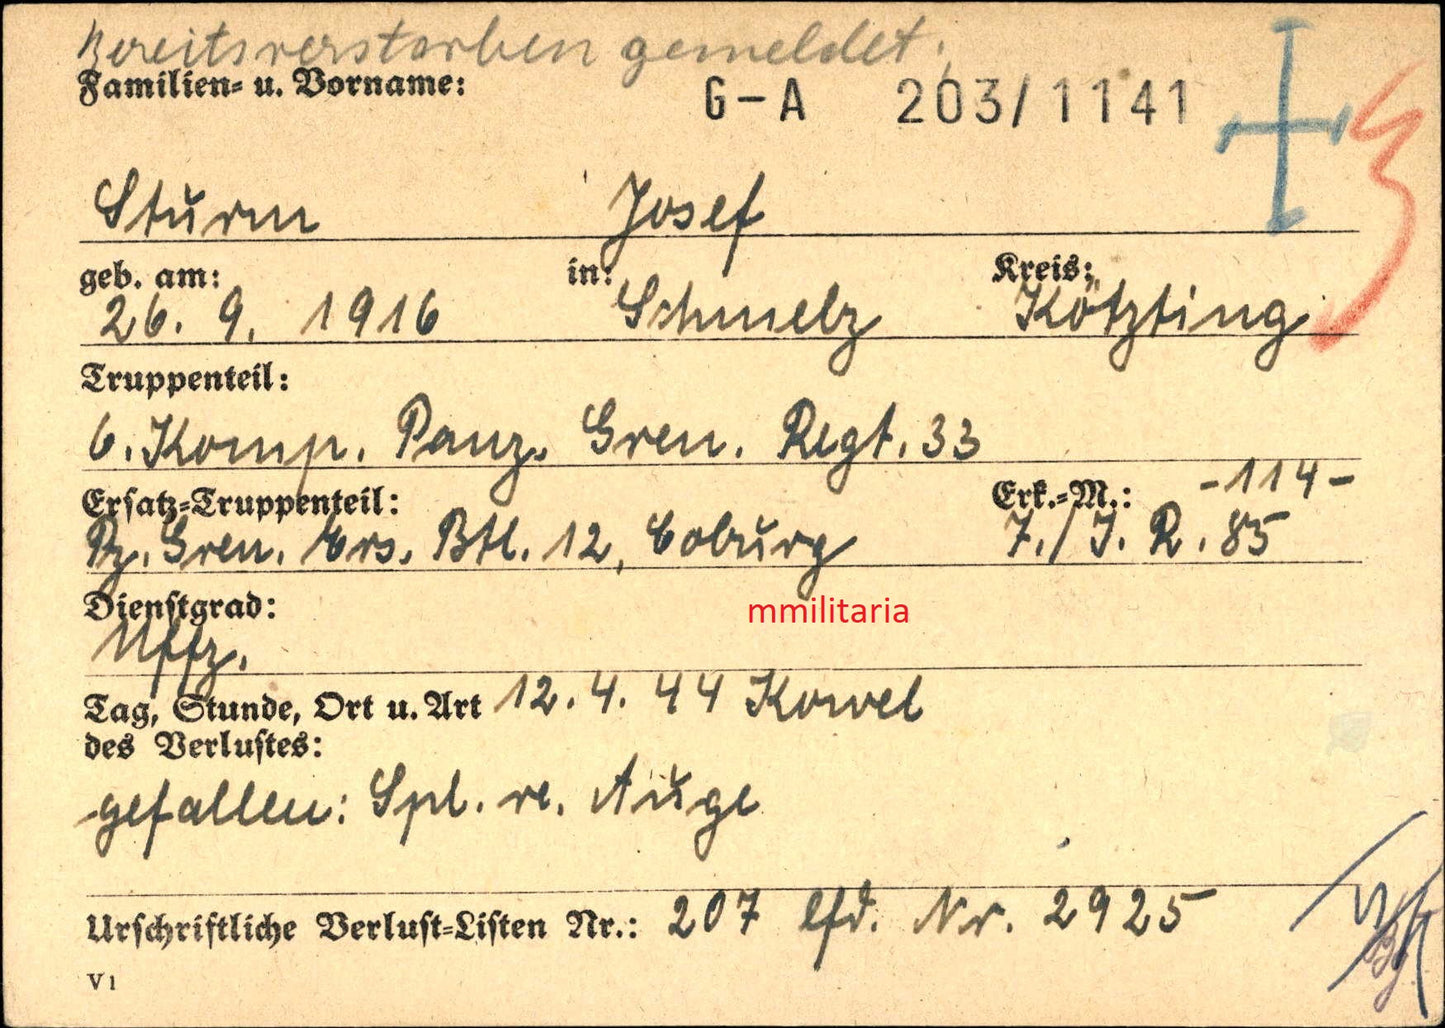 Bereits verstorben gemeldet.
Familien- u. Vorname:
G-A 203/1141
Sturm Josef
geb. am: in: Kreis:
26. 9. 1916 Schmelz Kötzting
Truppenteil:
6. Komp. Panz. Gren. Regt. 33
Ersatz-Truppenteil: Erk.-M.: -114-
Pz. Gren. Ers. Btl. 12, Coburg 7./J. R. 85
Dienstgrad:
mmilitaria
Uffz.
Tag, Stunde, Ort u. Art 12. 4. 44 Kowel
des Verlustes:
gefallen: Spl. re. Auge
Urschriftliche Verlust-Listen Nr.: 207 lfd. Nr. 2925
V1